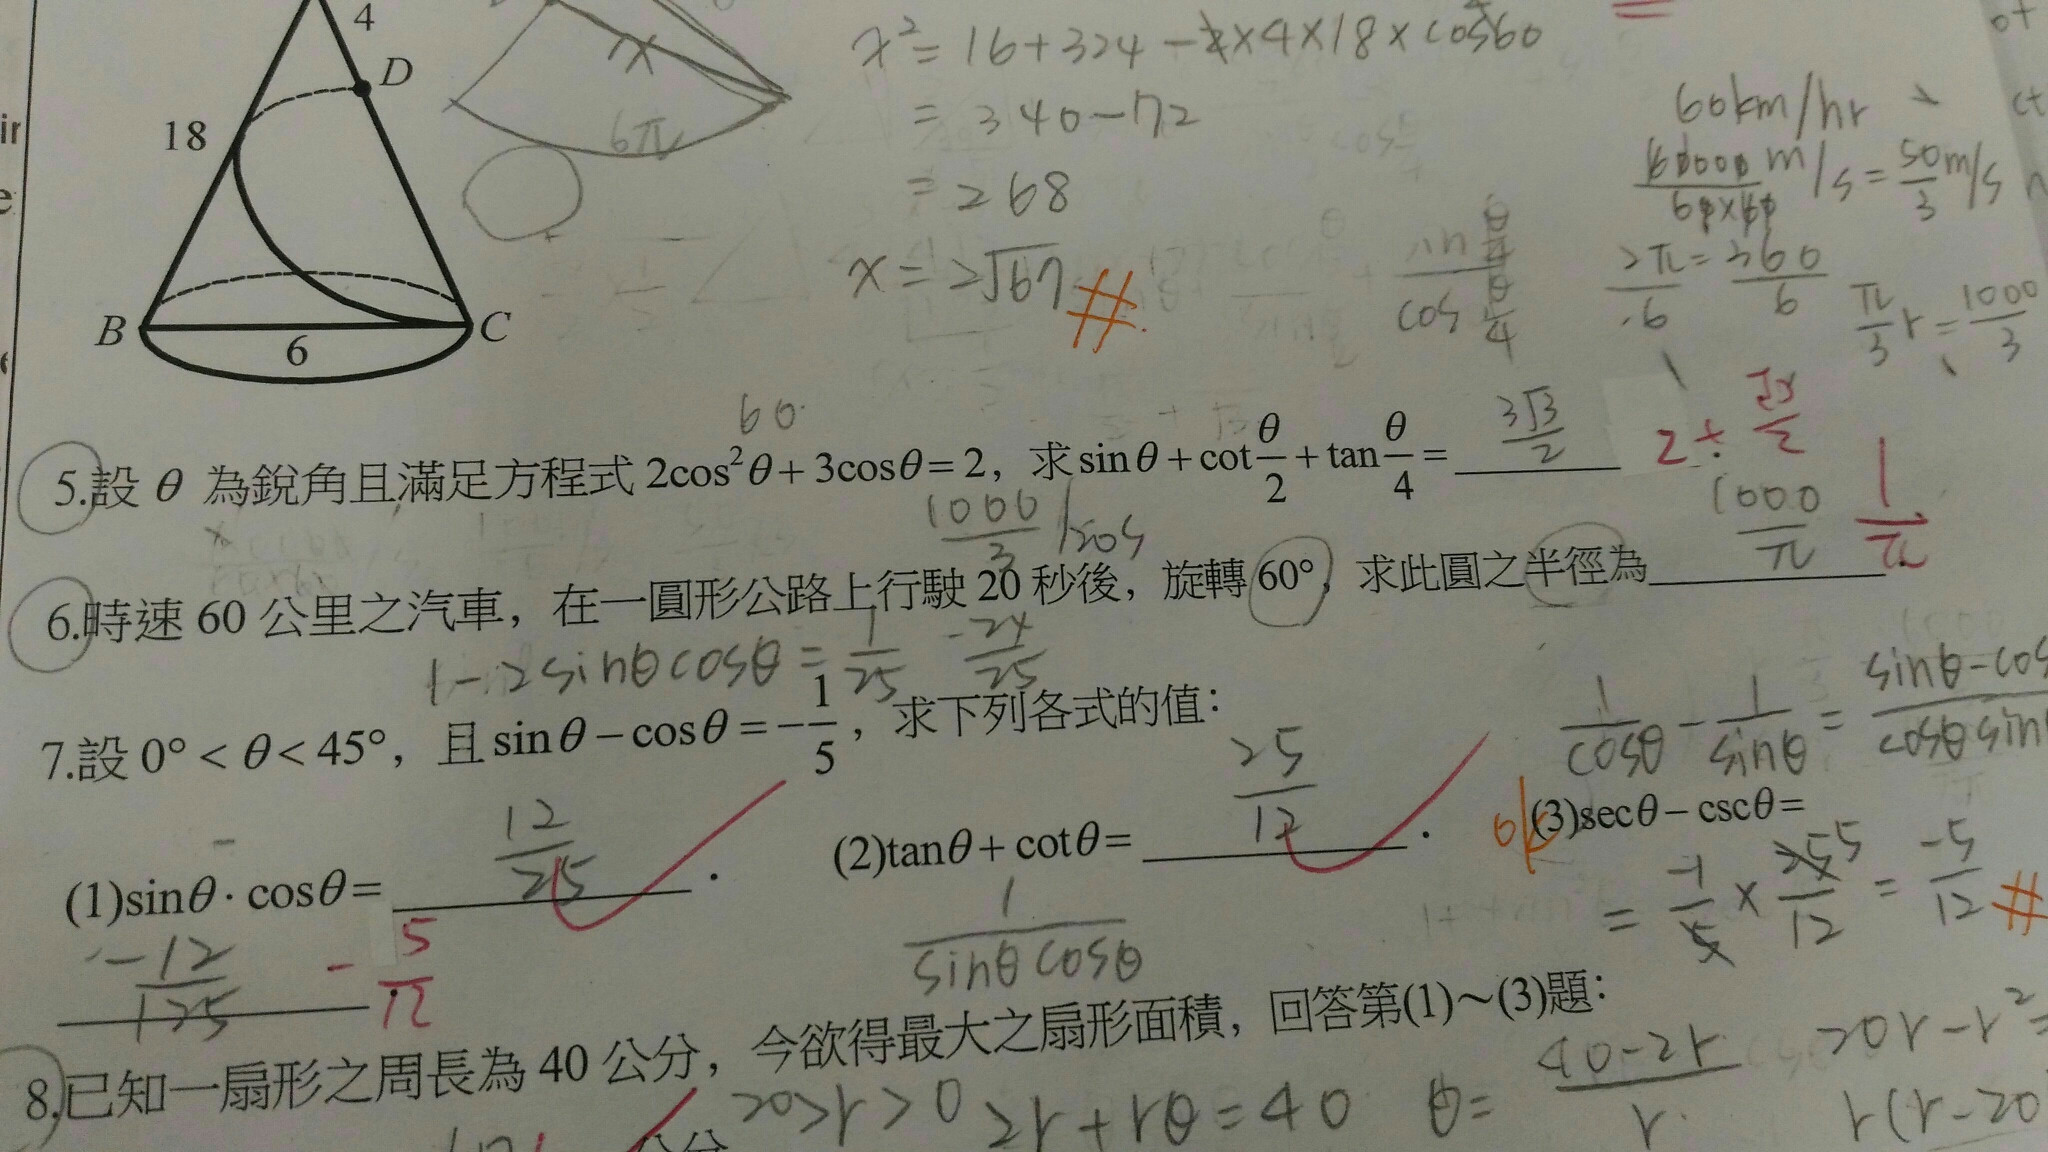 4
D
18
B
6
C
x
6π
x² = 16+324-2×4×18×cos60
= 340-72
= 268
x = 2√67 #
60km/hr
60000/60×60 m/s = 50/3 m/s
2π/6 = 360/6
π/3 r = 1000/3
cos θ/4
60
5.設 θ 為銳角且滿足方程式 2cos²θ+3cosθ=2，求 sinθ+cot θ/2+tan θ/4= 3√3/2
1000/3 /20s
1000/π
1/π
6.時速 60 公里之汽車，在一圓形公路上行駛 20 秒後，旋轉 60°，求此圓之半徑為
1-2sinθcosθ = 1/25 -24/25
7.設 0°<θ<45°，且 sinθ-cosθ=-1/5，求下列各式的值：
1/cosθ - 1/sinθ = sinθ-cos / cosθsin
(1)sinθ·cosθ= 12/25 .
(2)tanθ+cotθ= 25/12 .
ok (3)secθ-cscθ=
= -1/5 × 25/12 = -5/12 #
1/sinθcosθ
-12/125
-5/12
8.已知一扇形之周長為 40 公分，今欲得最大之扇形面積，回答第(1)～(3)題：
20>r>0
2r+rθ=40
θ= 40-2r/r
20r-r²=
r(r-20
公分